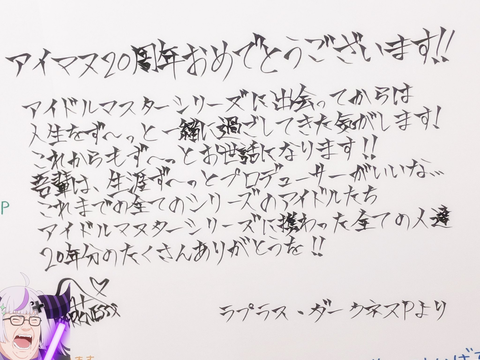 アイマス20周年おめでとうございます!!
アイドルマスターシリーズに出会ってからは
人生をず〜っと一緒に過ごしてきた気がします!
これからもず〜っとお世話になります!!
吾輩は、生涯ず〜っとプロデューサーがいいな、、
これまでの全てのシリーズのアイドルたち
アイドルマスターシリーズに携わった全ての人達
20年分のたくさんありがとうを!!
ラプラス・ダークネスPより
P